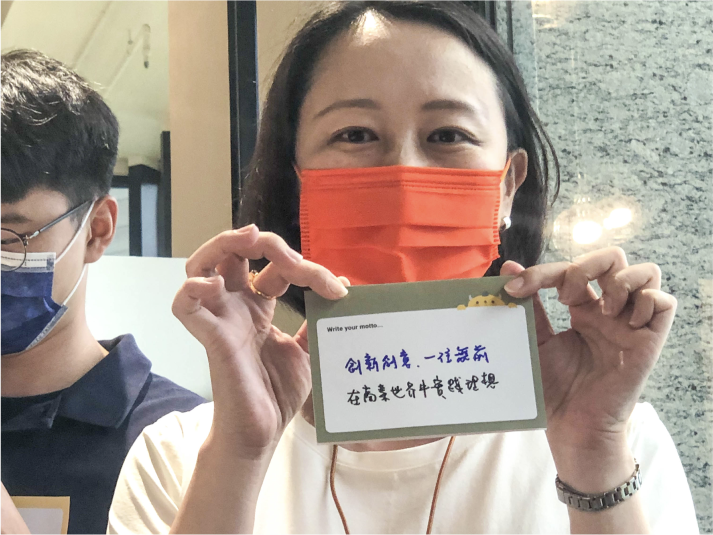 Write your motto...
創新創意、一往無前
在商業世界中實踐理想